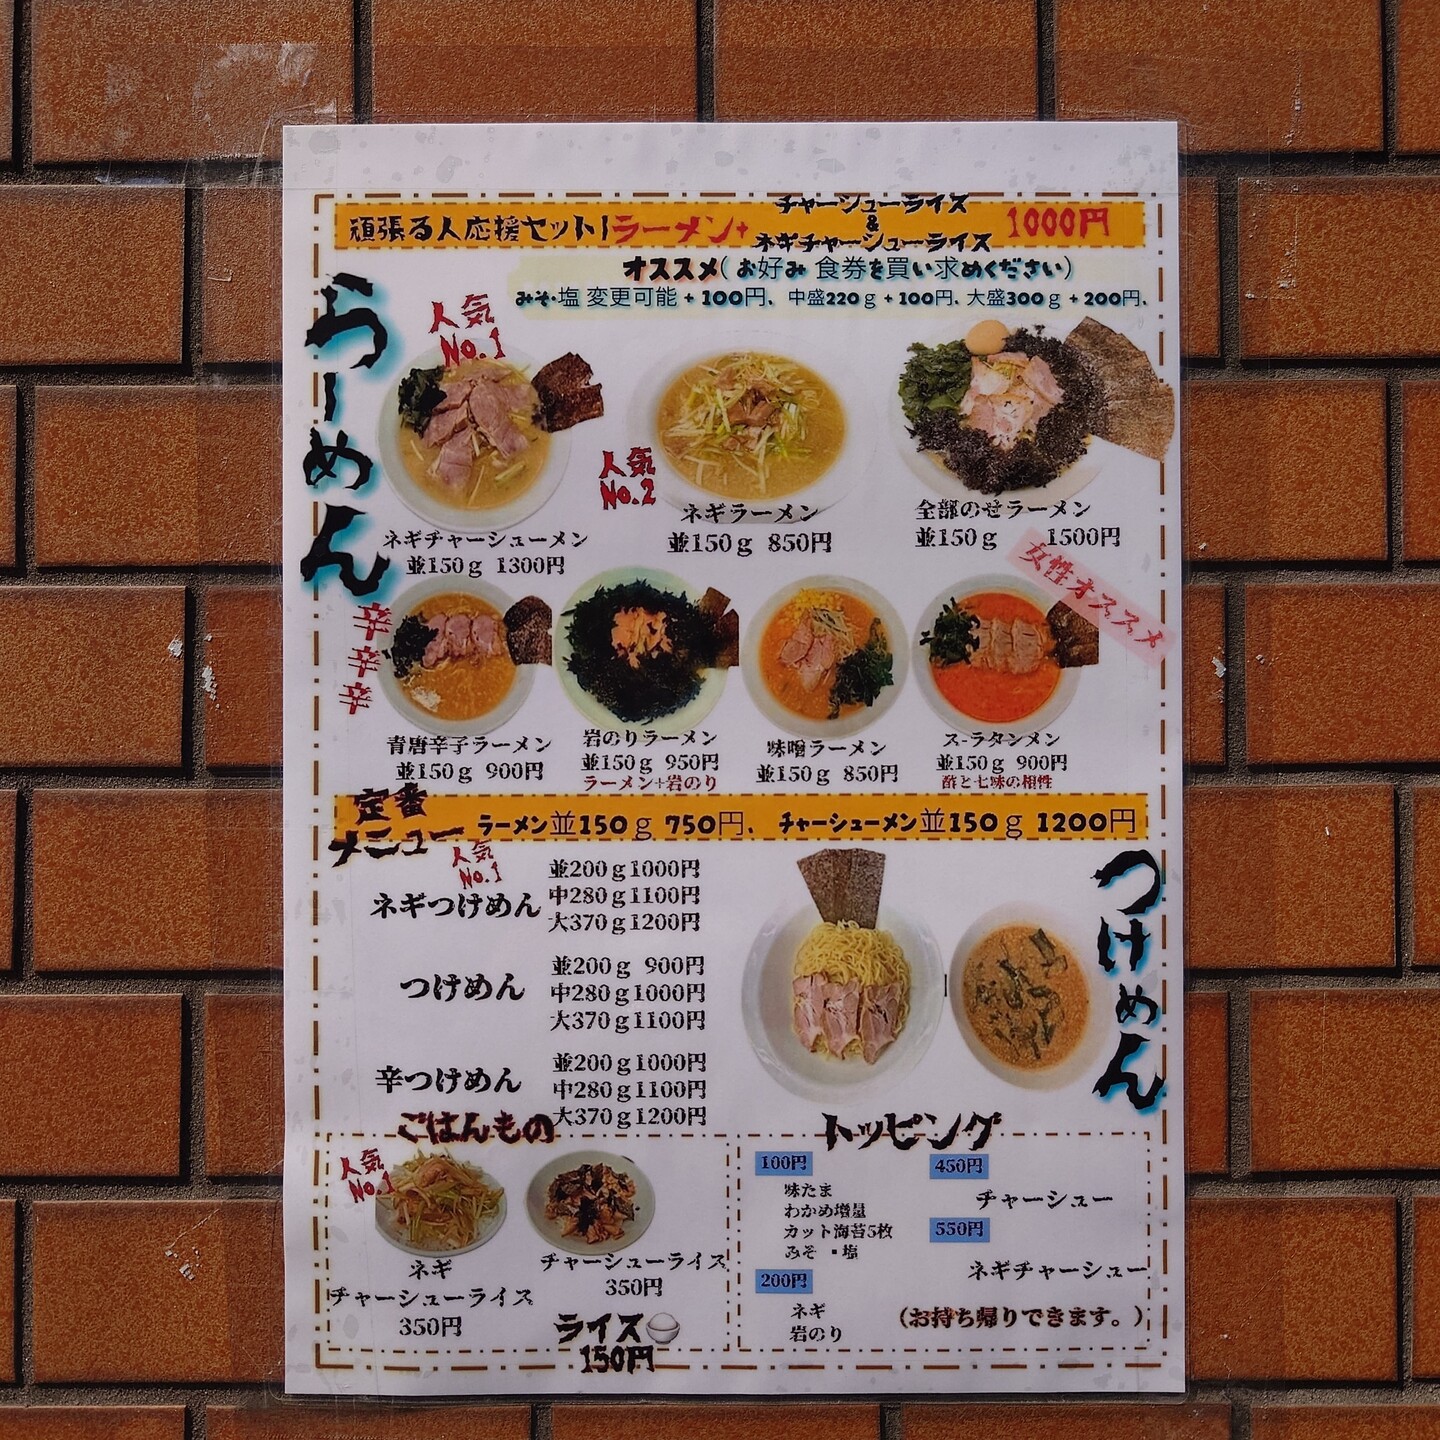 頑張る人応援セット!ラーメン+ チャーシューライス & ネギチャーシューライス 1000円
オススメ(お好み 食券を買い求めください)
みそ・塩 変更可能 + 100円、中盛220g + 100円、大盛300g + 200円、
らーめん
人気 No.1
ネギチャーシューメン
並150g 1300円
人気 No.2
ネギラーメン
並150g 850円
全部のせラーメン
並150g 1500円
女性オススメ
辛辛辛
青唐辛子ラーメン
並150g 900円
岩のりラーメン
並150g 950円
ラーメン+岩のり
味噌ラーメン
並150g 850円
スーラタンメン
並150g 900円
酢と七味の相性
定番メニュー
ラーメン並150g 750円、 チャーシューメン並150g 1200円
つけめん
人気 No.1
ネギつけめん
並200g1000円
中280g1100円
大370g1200円
つけめん
並200g 900円
中280g1000円
大370g1100円
辛つけめん
並200g1000円
中280g1100円
大370g1200円
ごはんもの
人気 No.1
ネギ
チャーシューライス
350円
チャーシューライス
350円
ライス
150円
トッピング
100円
味たま
わかめ増量
カット海苔5枚
みそ・塩
200円
ネギ
岩のり
450円
チャーシュー
550円
ネギチャーシュー
(お持ち帰りできます。)